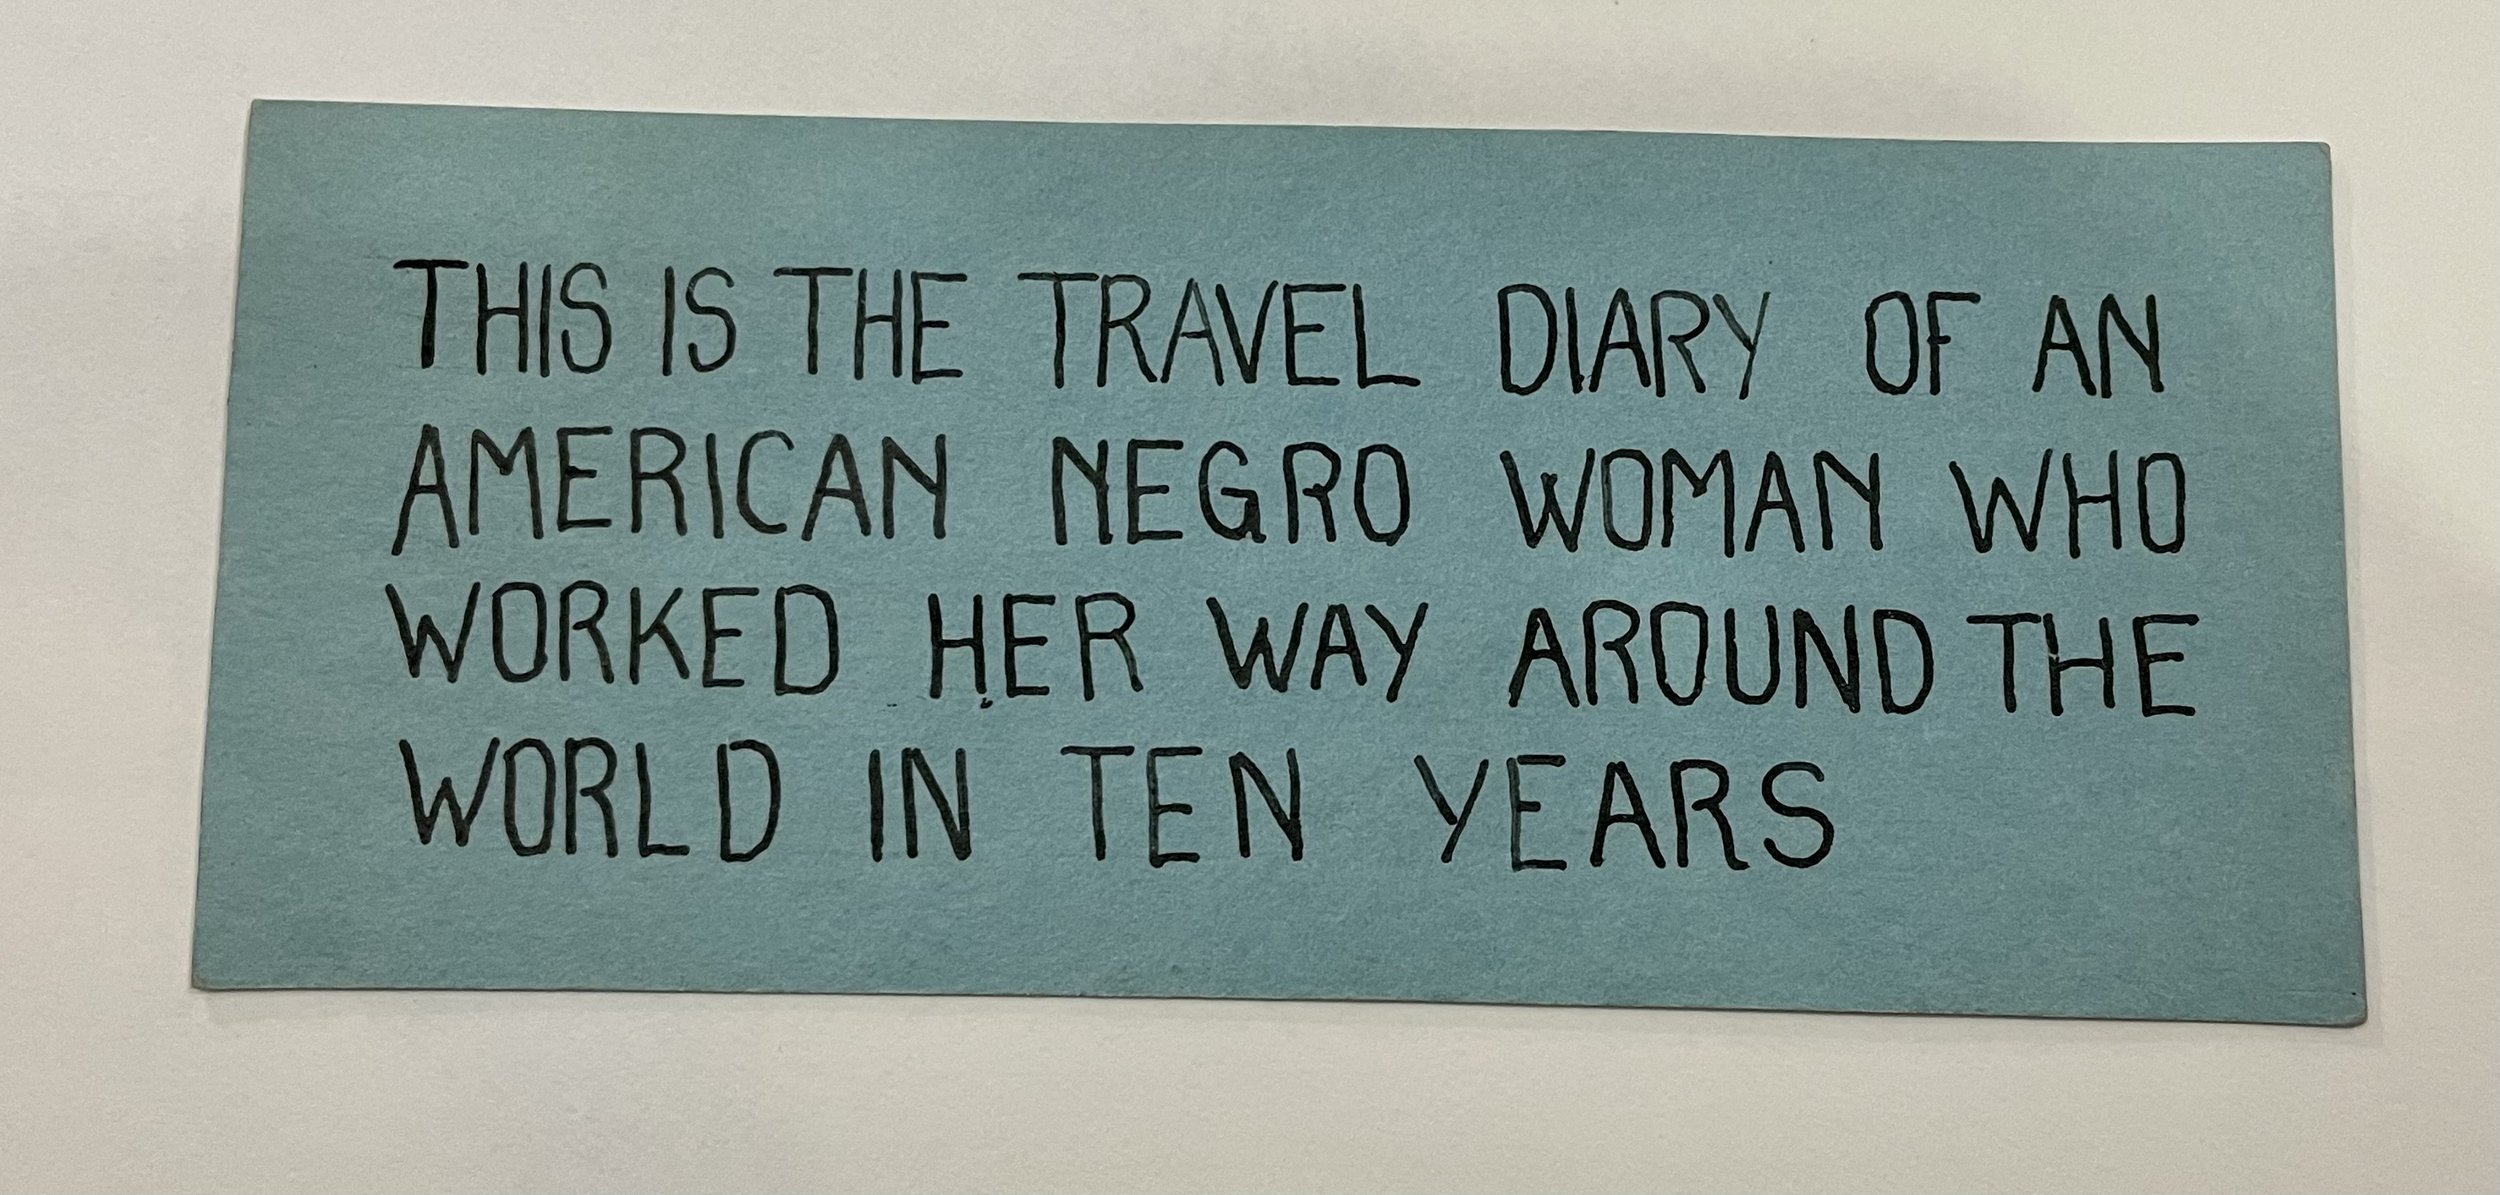 THIS IS THE TRAVEL DIARY OF AN
AMERICAN NEGRO WOMAN WHO
WORKED HER WAY AROUND THE
WORLD IN TEN YEARS